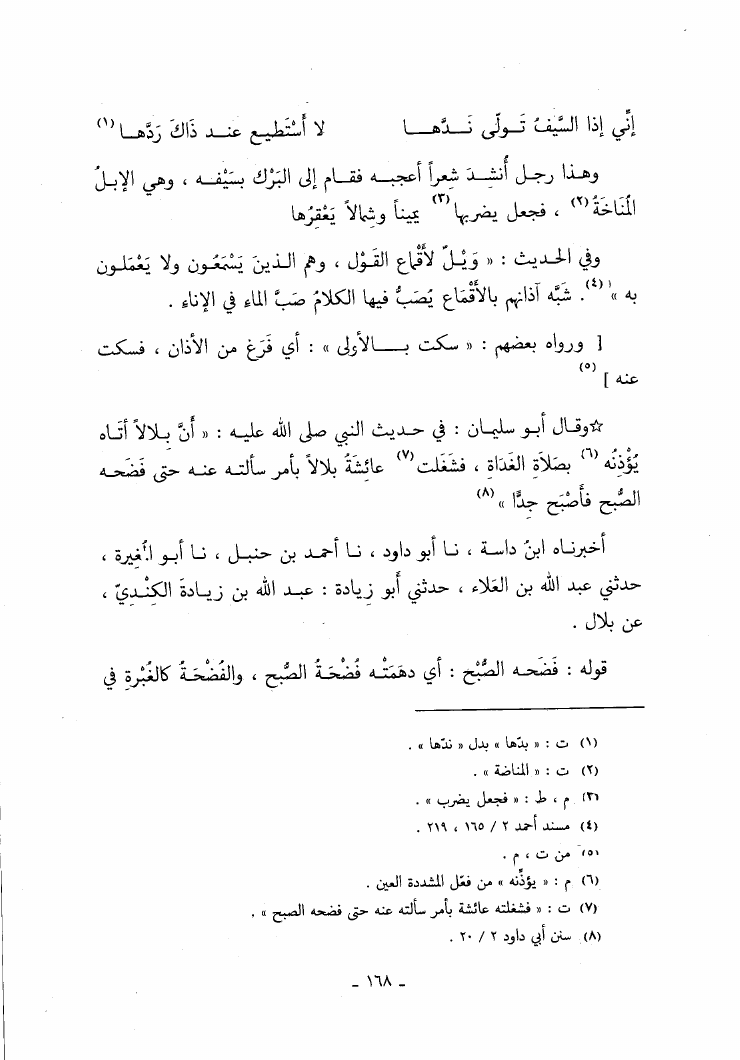 إنِّي إذا السَّيفُ تَولّى نَدَّهـا لا أَسْتَطيع عند ذَاكَ رَدَّهـا (١)
وهذا رجل أُنشِدَ شعراً أعجبه فقام إلى البَرْك بسَيْفه ، وهي الإبلُ
المُنَاخَةُ (٢) ، فجعل يضربها (٣) يميناً وشمالاً يَعْقِرُها
وفي الحديث : « وَيْلٌ لأَقْماع القَوْل ، وهم الذينَ يَسْمَعُون ولا يَعْمَلون
به » (٤) . شبَّه آذانهم بالأَقْمَاع يُصَبُّ فيها الكلامُ صَبَّ الماء في الإناء .
[ ورواه بعضهم : « سكت بـالأولى » : أي فَرَغ من الأذان ، فسكت
عنه ] (٥)
☆وقال أبو سليمان : في حديث النبي صلى الله عليه : « أَنَّ بلالاً أتَاه
يُؤْذِنُه (٦) بصَلاَةِ الغَدَاةِ ، فشَغَلت (٧) عائشَةُ بلالاً بأمر سألته عنه حتى فَضَحه
الصُّبح فأَصْبَح جِدًّا » (٨)
أخبرناه ابنُ داسة ، نا أبو داود ، نا أحمد بن حنبل ، نا أبو المُغيرة ،
حدثني عبد الله بن العَلاء ، حدثني أَبو زيادة : عبد الله بن زيادةَ الكِنْدِيّ ،
عن بلال .
قوله : فَضَحه الصُّبْح : أي دهَمَتْه فُضْحَةُ الصُّبح ، والفُضْحَةُ كالغُبْرةِ في
(١) ت : « بدّها » بدل « ندّها » .
(٢) ت : « المناضة » .
(٣) م ، ط : « فجعل يضرب » .
(٤) مسند أحمد ٢ / ١٦٥ ، ٢١٩ .
(٥) من ت ، م .
(٦) م : « يؤذّنه » من فعّل المشددة العين .
(٧) ت : « فشغلته عائشة بأمر سألته عنه حتى فضحه الصبح » .
(٨) سنن أبي داود ٢ / ٢٠ .
- ١٦٨ -